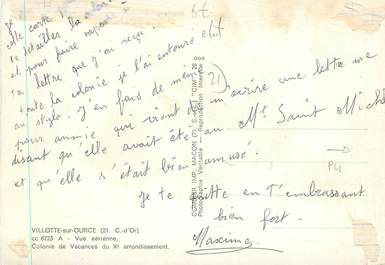 je
cette carte
détailler la
et pour faire
ta lettre que j'ai reçue.
toute la colonie je l'ai entouré
au stylo. J'en fais de même
pour annie qui vient de m'écrire une lettre me
disant qu'elle avait été au Mt Saint Mich
et qu'elle s'était bien amusé.
Je te quitte en t'embrassant
bien fort.
Maxime
21
PG
COMBIER IMP. MACON (71) S.-ET-L. "CIM"
Photographie Véritable — Reproduction Interdite
VILLOTTE-sur-OURCE (21. C.-d'Or)
cc 6723 A - Vue aérienne.
Colonie de Vacances du Xe arrondissement.